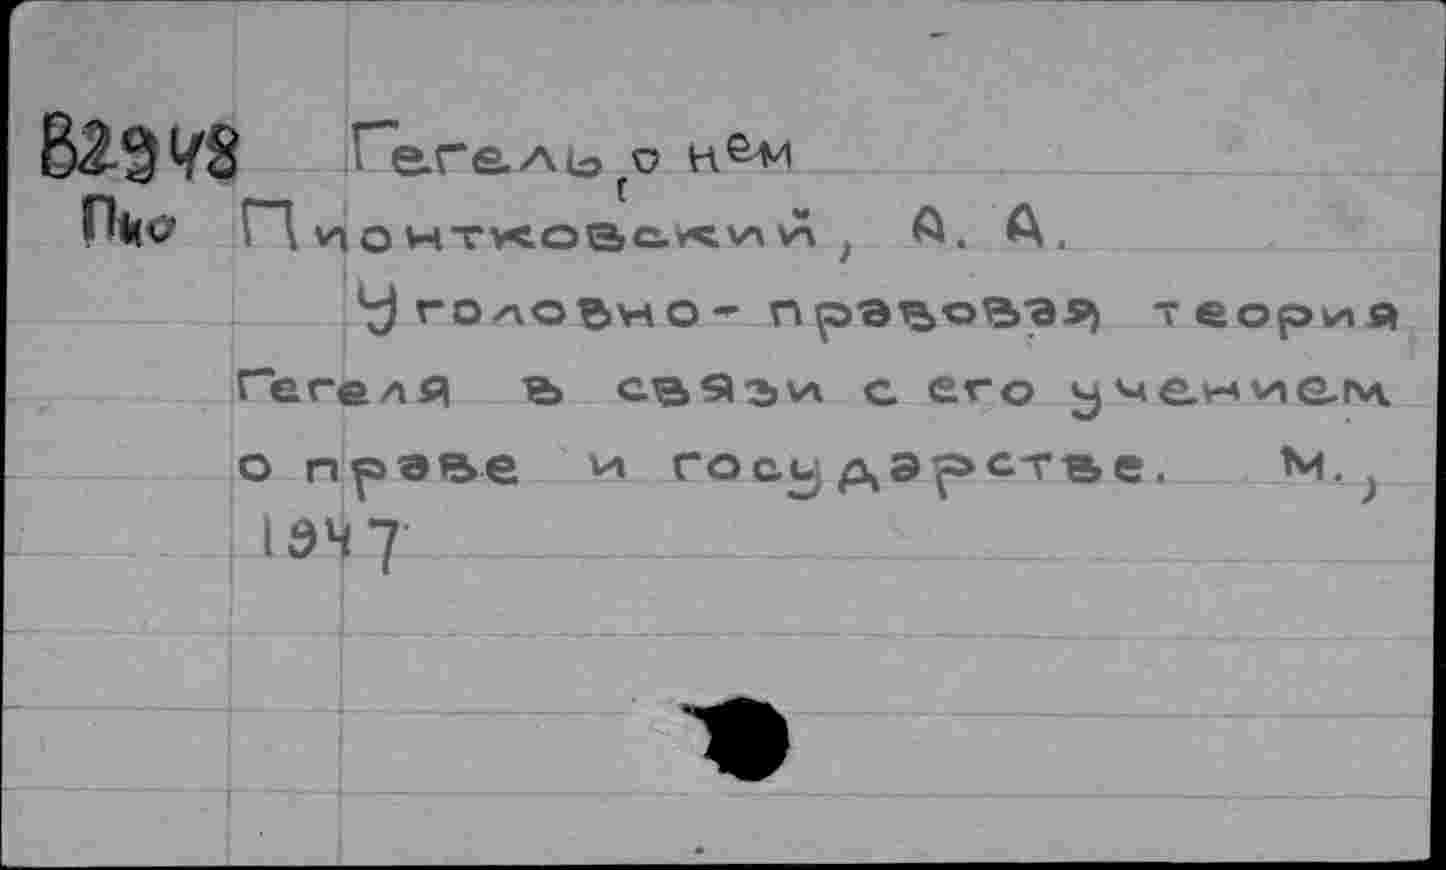 B2948 Гегель, о нём
Пио Пионтковский, А. А.
Уголовно-правовая теория
Гегеля в связи с его учением
о праве и государстве. М.,
1947